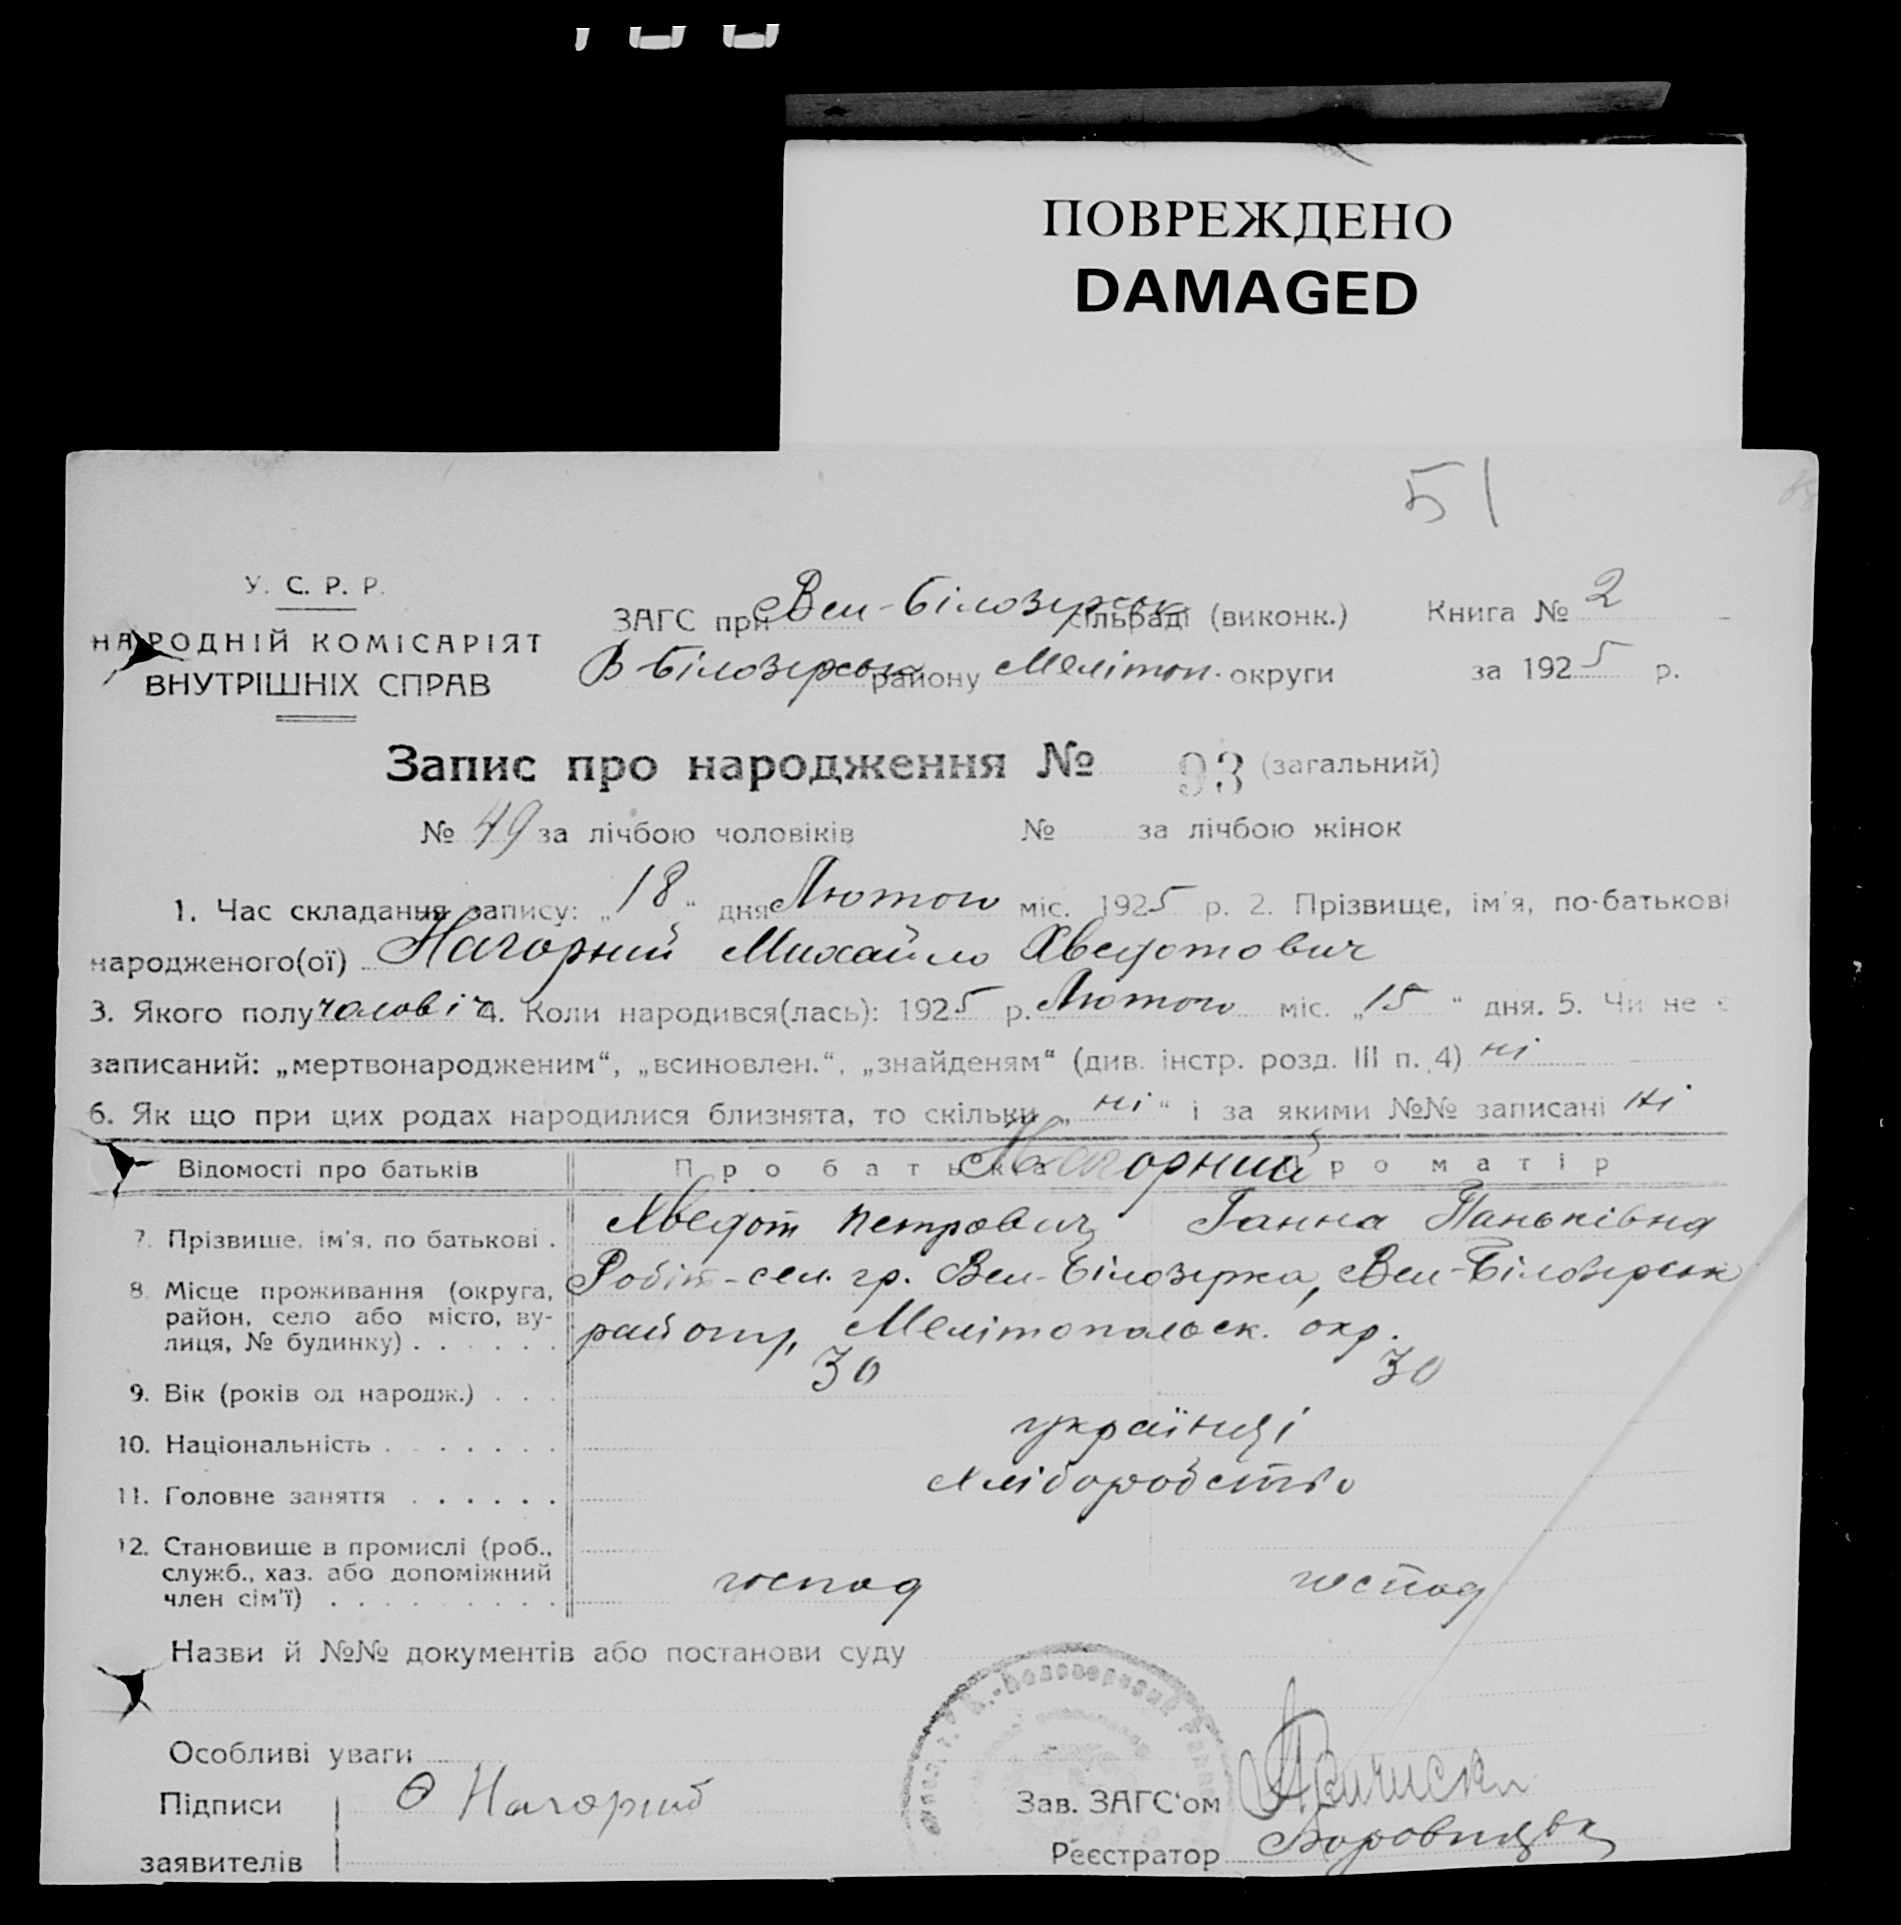 ПОВРЕЖДЕНО
DAMAGED
51
У. С. Р. Р.
НАРОДНІЙ КОМІСАРІЯТ
ВНУТРІШНІХ СПРАВ
ЗАГС при Вел-Білозерськ сільраді (виконк.) Книга № 2
В-Білозерськ району Мелітоп. округи за 1925 р.
Запис про народження № 93 (загальний)
№ 49 за лічбою чоловіків № за лічбою жінок
1. Час складання запису: „18“ дня Лютого міс. 1925 р. 2. Прізвище, ім'я, по-батькові
народженого(ої) Нагорний Михайло Хведотович
3. Якого полу чоловіч 4. Коли народився(лась): 1925 р. Лютого міс. „15“ дня. 5. Чи не є
записаний: „мертвонародженим“, „всиновлен.“, „знайденям“ (див. інстр. розд. III п. 4) ні
6. Як що при цих родах народилися близнята, то скільки „ні“ і за якими №№ записані ні
Відомості про батьків Про батька Нагорний Про матір
7. Прізвише, ім'я, по батькові . Хведот Петрович Ганна Паньківна
8. Місце проживання (округа, Робіт-сел. гр. Вел-Білозерка, Вел-Білозерськ
район, село або місто, ву-
лиця, № будинку) . . . . . . району, Мелітопольск. окр.
9. Вік (років од народж.) . . . 30 30
10. Національність . . . . . . . українці
11. Головне заняття . . . . . . хліборобство
12. Становище в промислі (роб.,
служб., хаз. або допоміжний господ господ
член сім'ї) . . . . . . . . .
Назви й №№ документів або постанови суду
Особливі уваги
Підписи Ѳ Нагорний Зав. ЗАГС'ом
заявителів Реєстратор